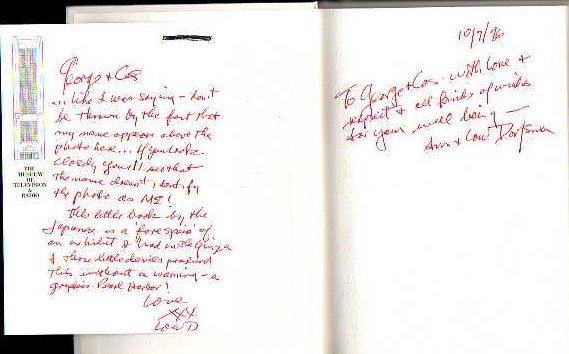 George + Cos
... like I was saying - don't
be thrown by the fact that
my name appears above the
photo here... If you look
closely you'll see that
the name doesn't identify
the photo as ME!
This little book by the
Japanese is a
of
an exhibit I had in the Ginza
+ these little devils produced
this without a warning - a
graphics Pearl Harbor!
Love
XXX
Lou D
THE
MUSEUM
OF
TELEVISION
&
RADIO
10/7/96
To George + Cos - with love +
respect + all kinds of wishes
for your well being -
Ann + Lou Dorfsman